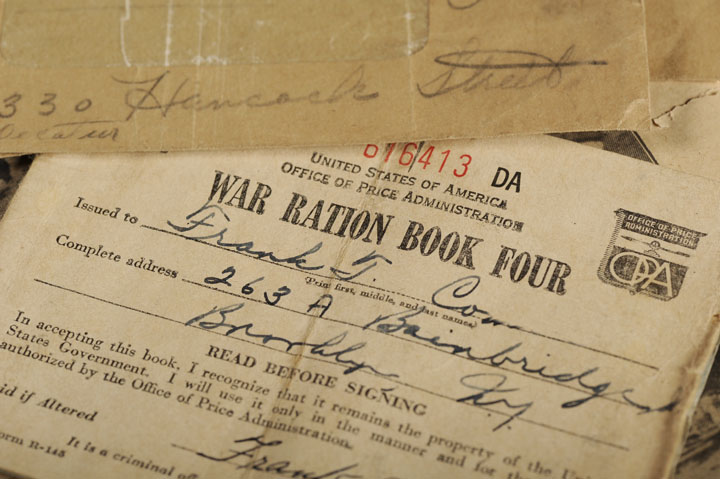 330 Hancock Street
Decatur
616413 DA
UNITED STATES OF AMERICA
OFFICE OF PRICE ADMINISTRATION
WAR RATION BOOK FOUR
OFFICE OF PRICE
ADMINISTRATION
OPA
Issued to Frank J. Com
(Print first, middle, and last names)
Complete address 263 A Bainbridge
Brooklyn, Ny.
READ BEFORE SIGNING
In accepting this book, I recognize that it remains the property of the Uni
States Government. I will use it only in the manner and for the
authorized by the Office of Price Administration.
id if Altered
Frank
orm R-145
It is a criminal of